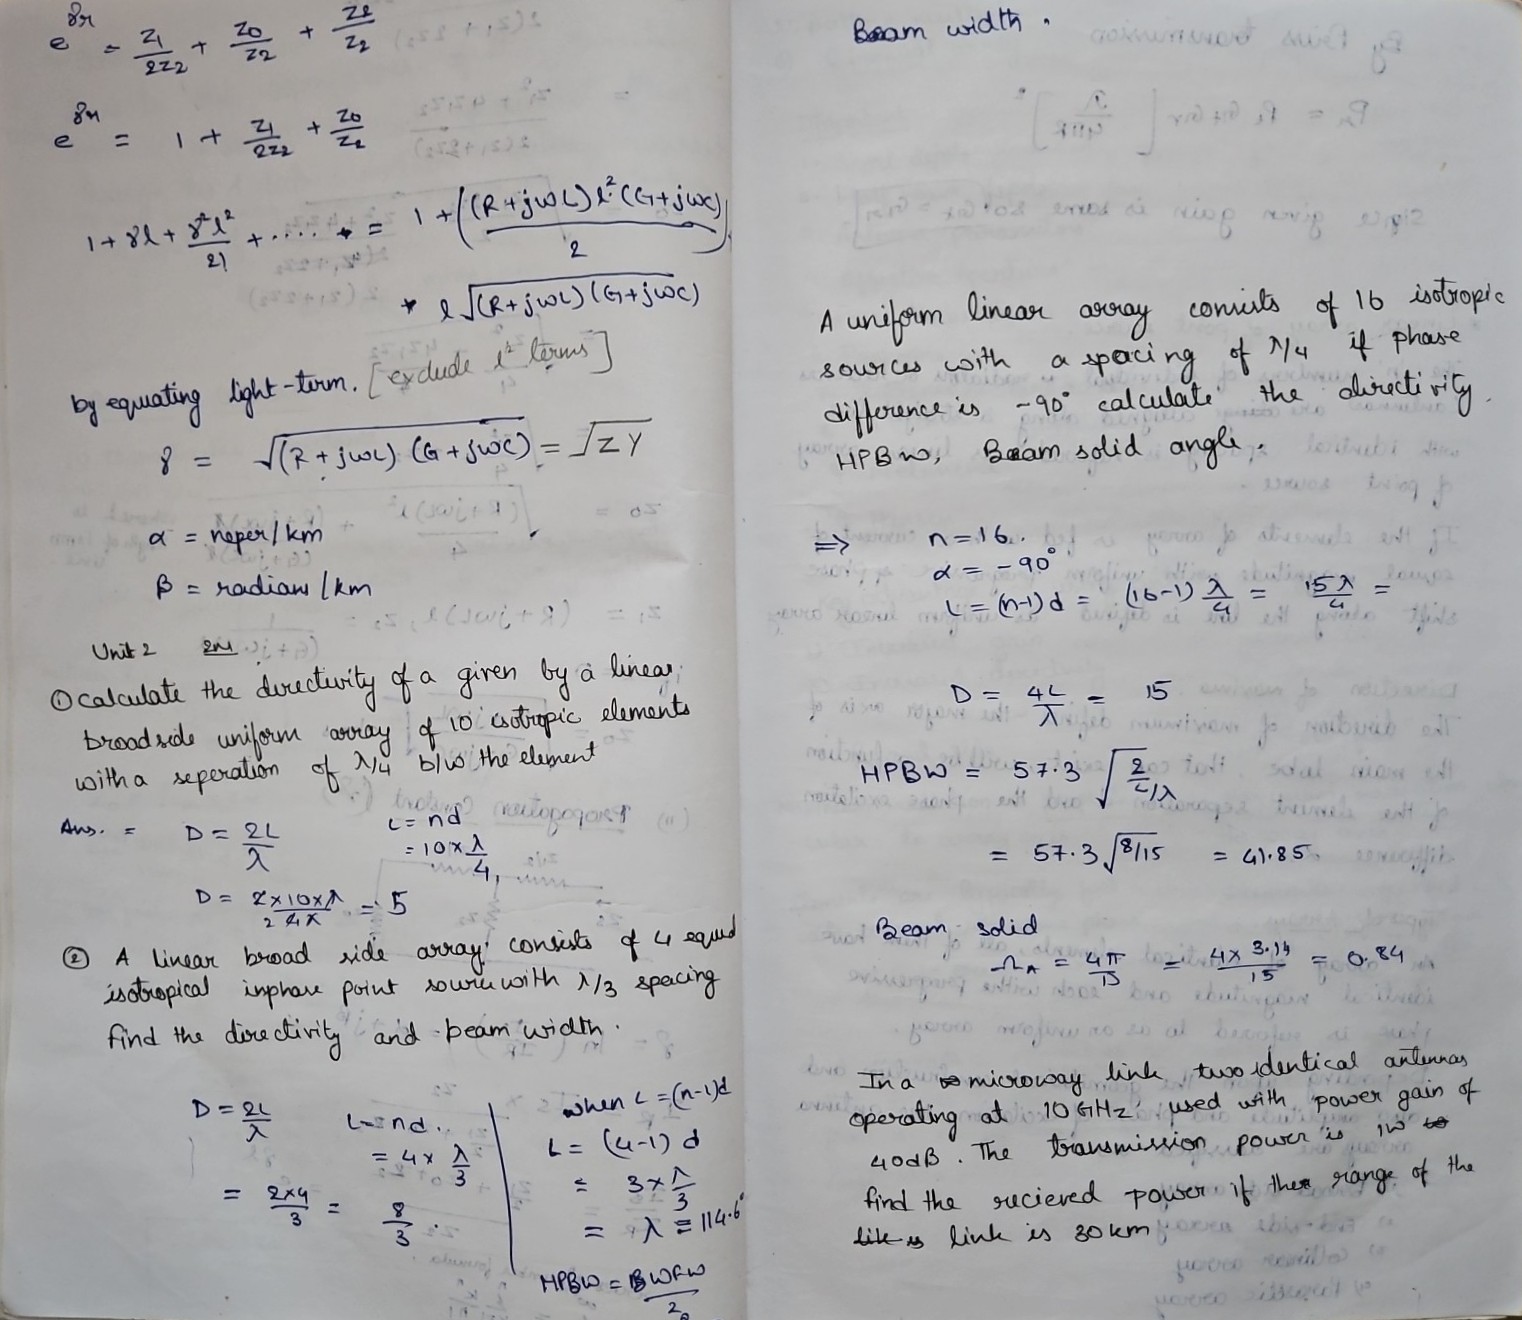 e^γr = Z1/2Z2 + Z0/Z2 + Z2/Z2
e^γn = 1 + Z1/2Z2 + Z0/Z2
1 + γl + γ²l²/2! + ..... = 1 + ((R+jωL) l² (G+jωC))/2
+ l √(R+jωL)(G+jωC)
by equating light-term. [exclude l² terms]
γ = √(R+jωL) (G+jωC) = √ZY
α = neper/km
β = radians/km
Unit 2 2M
① calculate the directivity of a given by a linear
broadside uniform array of 10 isotropic elements
with a seperation of λ/4 b/w the element
Ans. = D = 2L/λ L = nd
= 10 × λ/4
D = 2×10×λ/4λ = 5
② A linear broad side array consists of 4 equal
isotropical inphase point source with λ/3 spacing
find the directivity and beam width.
D = 2L/λ L = nd.
= 4 × λ/3
= 2×4/3 = 8/3.
when L = (n-1)d
L = (4-1) d
= 3 × λ/3
= λ = 114.6°
HPBW = BWFW/2
Beam width.
A uniform linear array consists of 16 isotropic
sources with a spacing of λ/4 if phase
difference is -90° calculate the directivity,
HPBW, Beam solid angle.
⇒ n = 16.
α = -90°
L = (n-1) d = (16-1) λ/4 = 15λ/4 =
D = 4L/λ = 15
HPBW = 57.3 √2/L/λ
= 57.3 √8/15 = 41.85
Beam solid
ΩA = 4π/D = 4×3.14/15 = 0.84
In a microway link two identical antennas
operating at 10 GHz used with power gain of
40dB. The transmission power is 1W
find the recieved power if the range of the
link is 30km